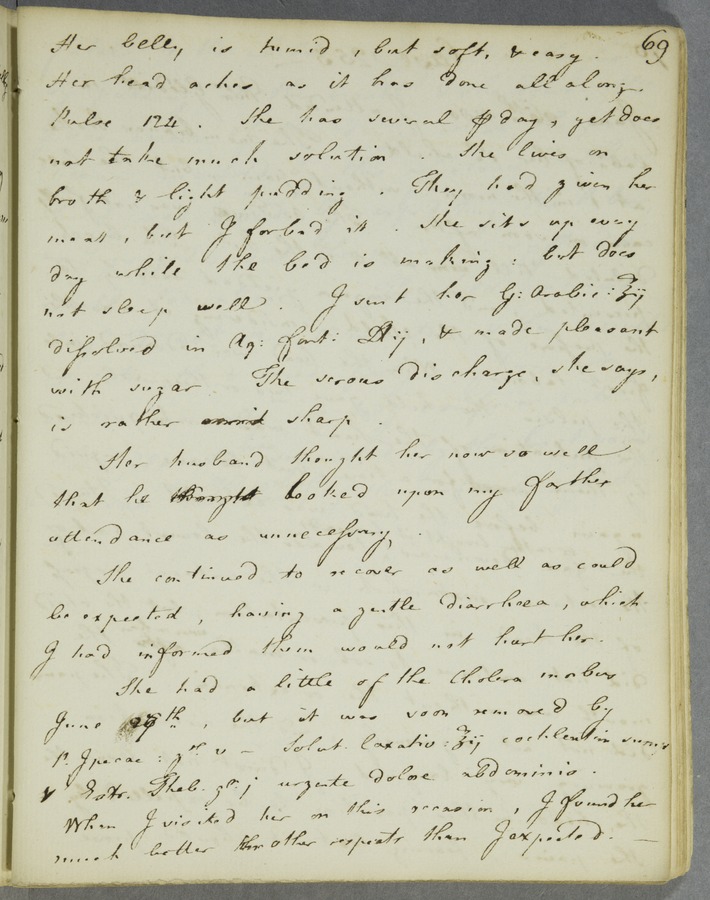 69
Her belly is tumid, but soft, & easy.
Her head aches as it has done all along.
Pulse 124. She has several ℘ day, yet does
not take much solution. She lives on
broth & light pudding. They had given her
meat, but I forbad it. She sits up every
day while the bed is making: but does
not sleep well. I sent her G: Arabic: ʒij
dissolved in Aq: font: ij, & made pleasant
with sugar The serous discharge, she says,
is rather sharp.
Her husband thought her now so well
that he thought looked upon my farther
attendance as unnecessary.
She continued to recover as well as could
be expected, having a gentle diarrhœa, which
I had informed them would not hurt her.
She had a little of the Cholera morbus
June th, but it was soon removed by
P. Ipecac: gr v – Solut. laxativ: ʒij cochleatim
& Extr. Theb. gr. j urgente dolore abdominis.
When I visited her on this occasion, I found her
much better in other respects than I expected. —